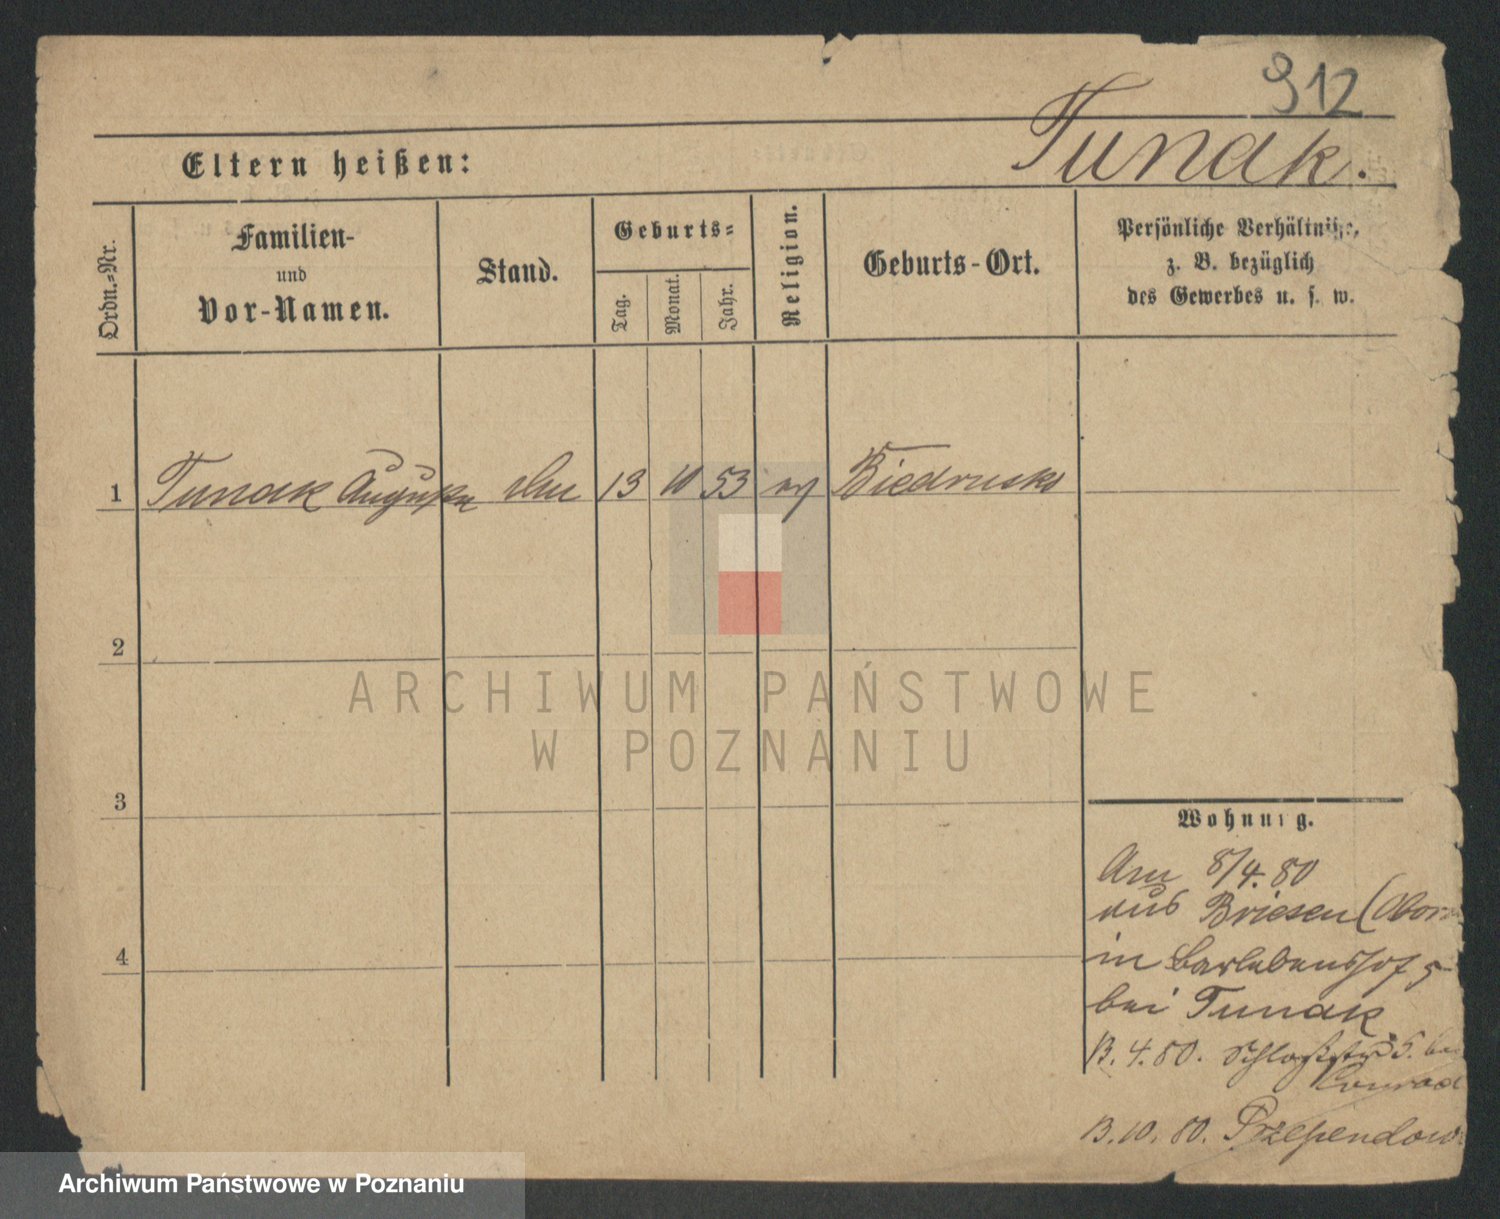 912
Tunak.
Eltern heißen:
Ordn.-Nr.
Familien-
und
Vor-Namen.
Stand.
Geburts-
Tag.
Monat.
Jahr.
Religion.
Geburts-Ort.
Persönliche Verhältnisse,
z. B. bezüglich
des Gewerbes u. s. w.
1 Tunak Augusta 13 10 53 Biedrusko
2
3
4
ARCHIWUM PAŃSTWOWE
W POZNANIU
Wohnung.
Am 8/4. 80
aus Briesen (Oborn
in Barlebenshof 5
bei Tunak
13. 4. 80. Schloßstr 5. bei
Conrad
13. 10. 80.
Archiwum Państwowe w Poznaniu